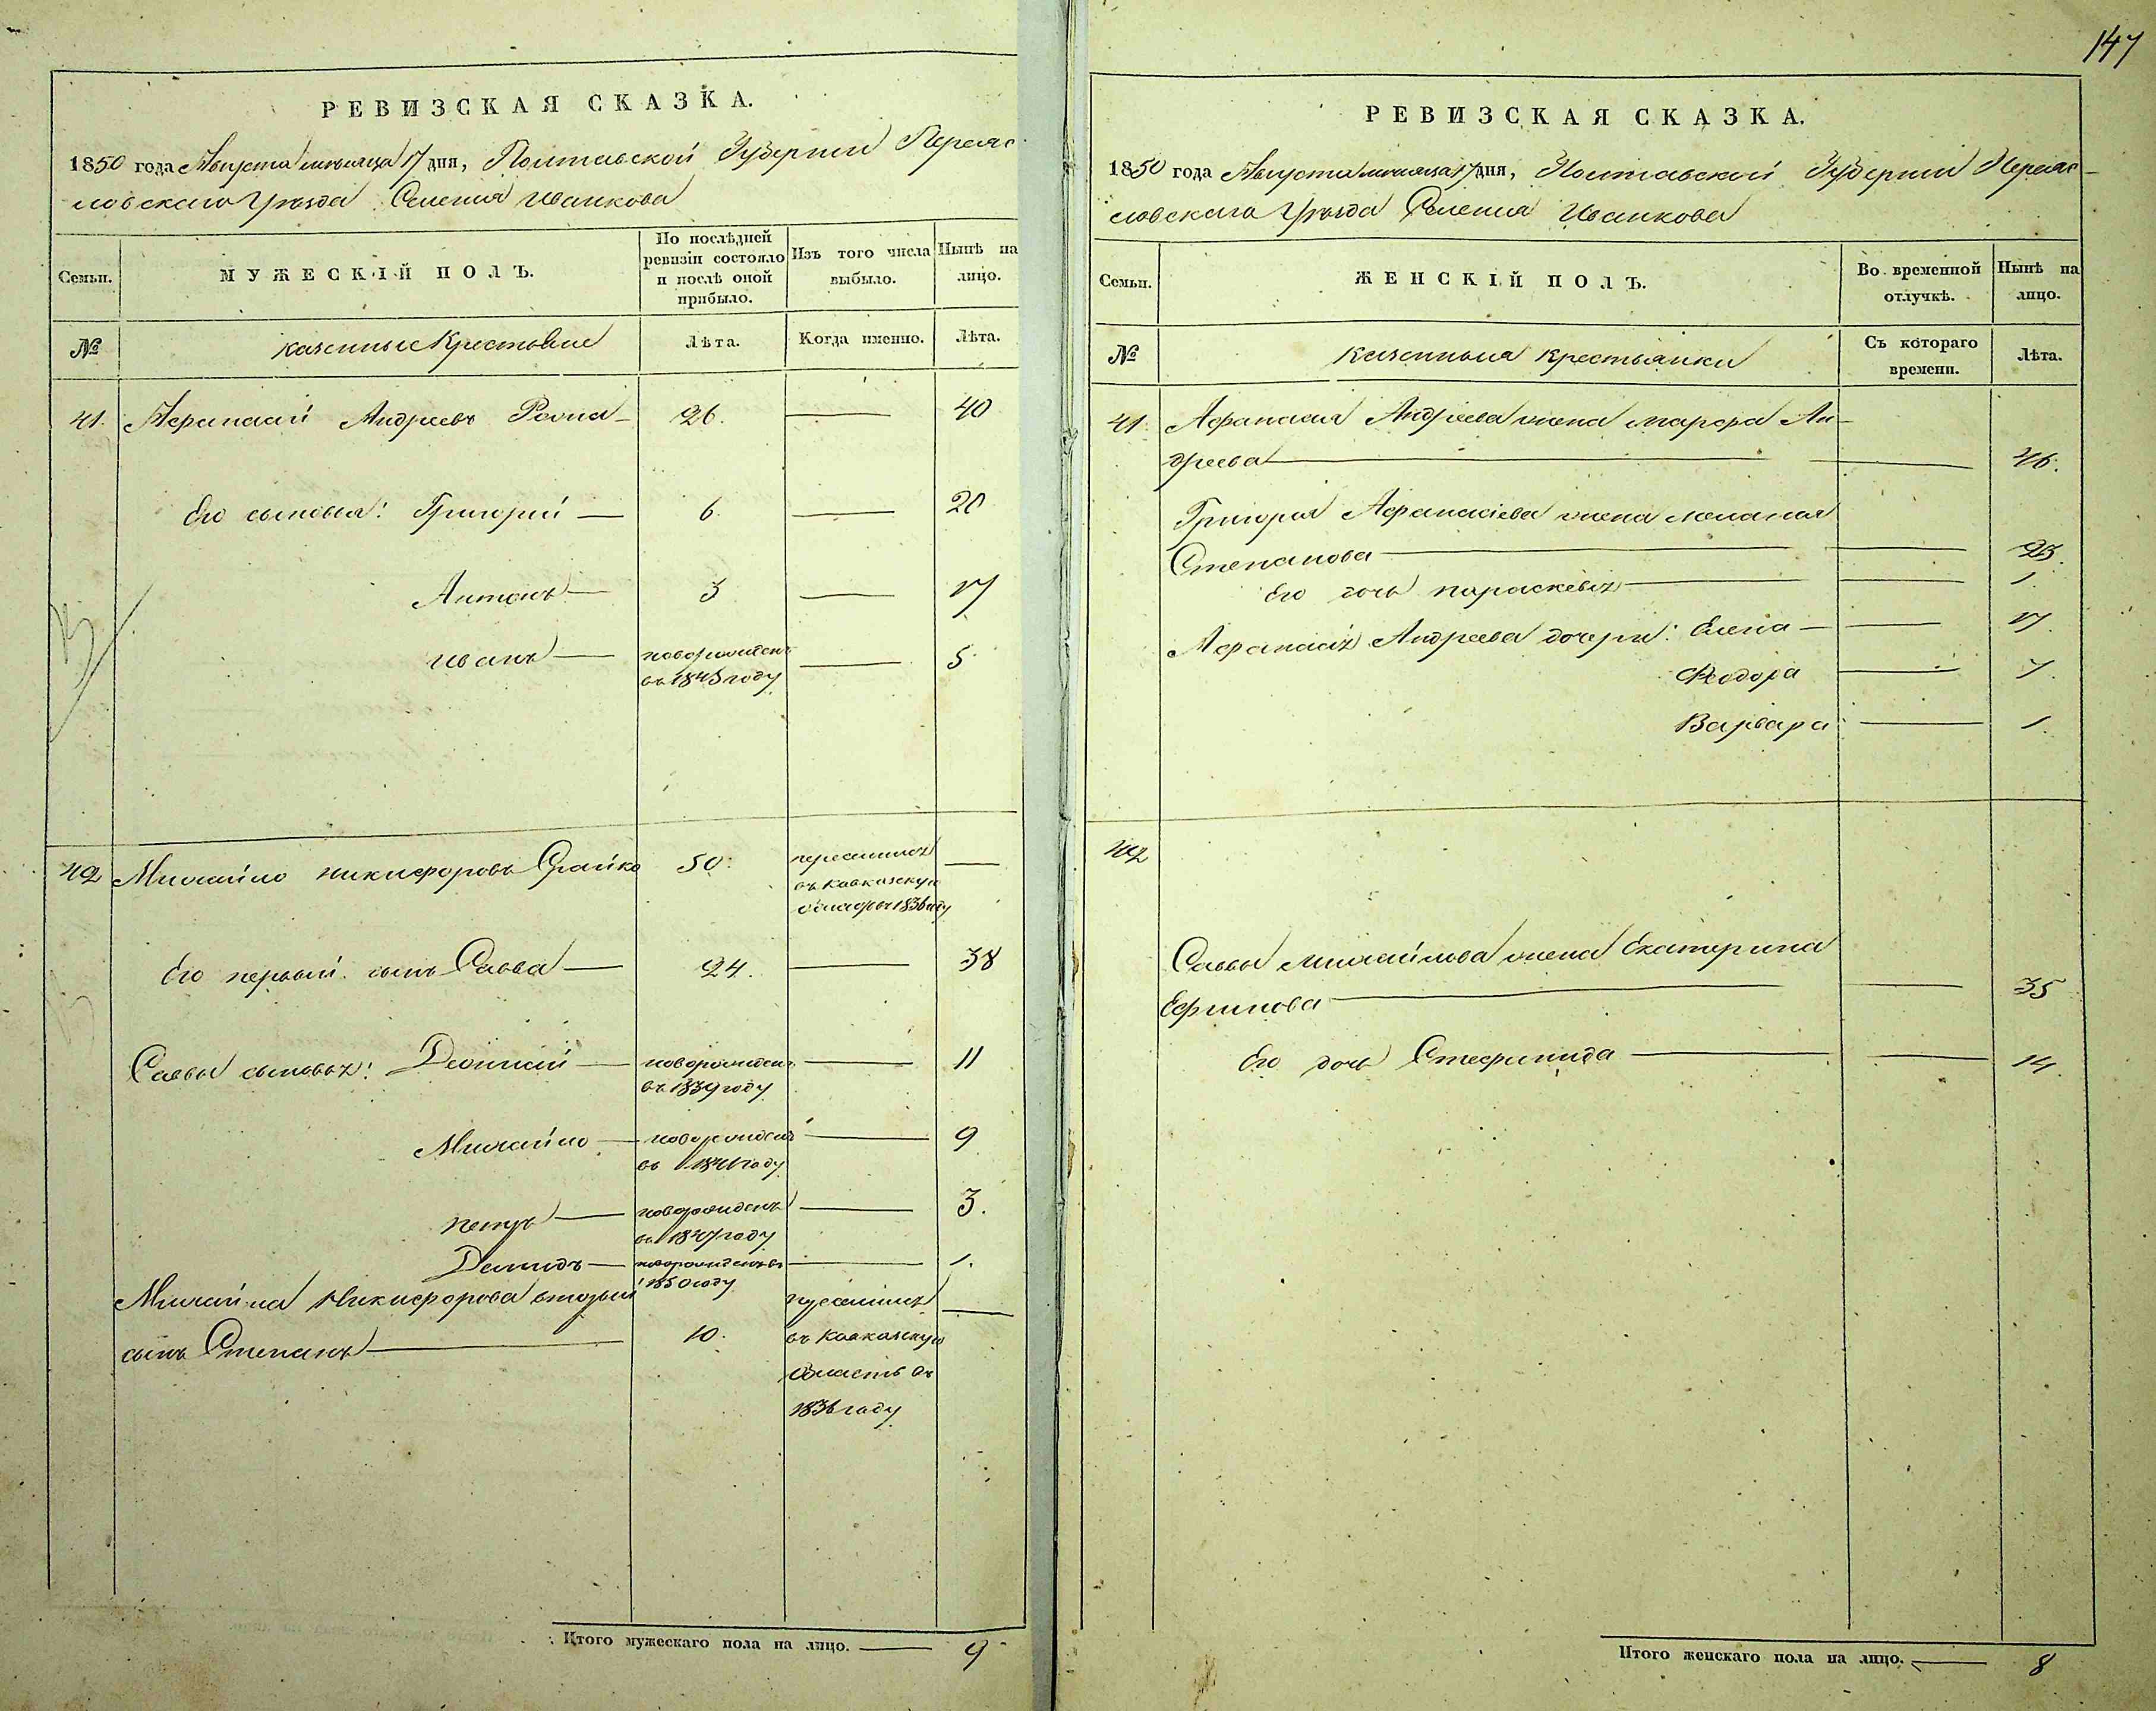 147
РЕВИЗСКАЯ СКАЗКА.
1850 года Августа месяца 17 дня, Полтавской Губернии Переяс-
ловскаго Уезда Селения Иванкова
Семьи.
МУЖЕСКІЙ ПОЛЪ.
По послѣдней ревизіи состояло и послѣ оной прибыло.
Изъ того числа выбыло.
Нынѣ на лицо.
№
казенные Крестьяне
Лѣта.
Когда именно.
Лѣта.
41. Афанасий Андреевъ 26. — 40
Его сыновья: Григорий — 6. — 20
Антонъ — 3 — 17
Иванъ — новорожденъ — 5
въ 1845 году
42 Михайло Никифоровъ 50. переселился —
въ Кавказскую
область 1836 году
Его первый сынъ Савва — 24. — 38
Саввы сыновья: — новорожденъ — 11
въ 1839 году
Михайло — новорожденъ — 9
въ 1841 году
Петръ — новорожденъ — 3.
въ 1847 году
Демидъ — новорожденъ въ — 1.
1850 году
Михайла Никифорова вторый переселился —
сынъ Степанъ — 10. въ Кавказскую
область въ
1836 году
Итого мужескаго пола на лицо. — 9
РЕВИЗСКАЯ СКАЗКА.
1850 года Августа месяца 17 дня, Полтавской Губернии Переяс-
ловскаго Уезда Селения Иванкова
Семьи.
ЖЕНСКІЙ ПОЛЪ.
Во временной отлучкѣ.
Нынѣ на лицо.
№
казенныя крестьянки
Съ котораго времени.
Лѣта.
41. Афанасия Андреева жена Марфа Ан-
дреева — — 46.
Григория Афанасіева жена Меланія
Степанова — — 23.
Его дочь Параскевія — — 1.
Афанасія Андреева дочери: Елена — — 17.
Феодора — 7.
Варвара — 1.
42
Саввы Михайлова жена Екатерина
Ефимова — — 35
Его дочь Стефанида — — 14.
Итого женскаго пола на лицо. — 8